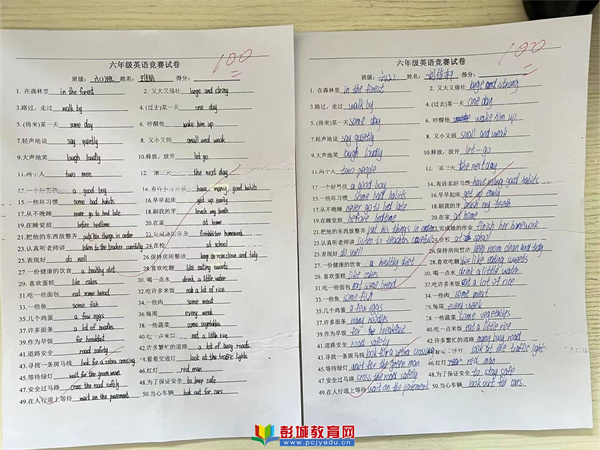 100
六年级英语竞赛试卷
班级： 姓名： 得分：
1. 在森林里 in the forest 2. 又大又强壮 large and strong
3.路过，走过 walk by 4. (过去)某一天 one day
5. (将来)某一天 some day 6. 吵醒他 wake him up
7.轻声地说 say quietly 8. 又小又弱 small and weak
9.大声地笑 laugh loudly 10.释放，放开 let go
11.两个人 two men 12. 第二天 the next day
a good boy 14. have many good habits
15.一些坏习惯 some bad habits 16.早早起床 get up early
17.从不晚睡 never go to bed late 18.刷我的牙 brush my teeth
19.在睡觉前 before bedtime 20.在家 at home
21.把他的东西放整齐 put his things in order 22.完成她的作业 finish her homework
23.认真听老师讲 listen to the teacher carefully 24.在校 at school
25.表现好 do well 26.保持房间整洁 keep room clean and tidy
27.一份健康的饮食 a healthy diet 28.喜欢吃糖 like eating sweets
29.喜欢蛋糕 like cakes 30.喝一点水 drink a little water
31.吃一些面包 eat some bread 32.吃许多米饭 eat a lot of rice
33.一些鱼 some fish 34.一些肉 some meat
35.几个鸡蛋 a few eggs 36.每周 every week
37.许多面条 a lot of noodles 38.一些蔬菜 some vegetables
39.作为早饭 for breakfast 40.吃一点米饭 eat a little rice
41.道路安全 road safety 42.许多繁忙的道路 a lot of busy roads
43.寻找一条斑马线 look for a zebra crossing 44.看着交通灯 look at the traffic lights
45.等待绿灯 wait for the green man 46.红灯 red man
47.安全过马路 cross the road safely 48.为了保证安全 to keep safe
49.在人行道上等待 wait on the pavement 50.当心车辆 look out for cars
100
六年级英语竞赛试卷
班级： 姓名： 得分：
1. 在森林里 in the forest 2. 又大又强壮 large and strong
3.路过，走过 walk by 4.(过去)某一天 one day
5.(将来)某一天 some day 6. 吵醒他 wake him up
7.轻声地说 say quietly 8. 又小又弱 small and weak
9.大声地笑 laugh loudly 10.释放，放开 let go
11.两个人 two people 12. 第二天 the next day
一个好男孩 a good boy 14.有许多好习惯 have many good habits
15.一些坏习惯 some bad habits 16.早早起床 get up early
17.从不晚睡 never go to bed late 18.刷我的牙 brush my teeth
19.在睡觉前 before bedtime 20.在家 at home
21.把他的东西放整齐 put his things in order 22.完成她的作业 finish her homework
23.认真听老师讲 listen to teachers 24.在校 at school
25.表现好 do well 26.保持房间整洁 keep room clean and tidy
27.一份健康的饮食 a healthy diet 28.喜欢吃糖 like eating sweets
29.喜欢蛋糕 like cakes 30.喝一点水 drink a little water
31.吃一些面包 eat some bread 32.吃许多米饭 eat a lot of rice
33.一些鱼 some fish 34.一些肉 some meat
35.几个鸡蛋 a few eggs 36.每周 every week
37.许多面条 many noodles 38.一些蔬菜 some vegetables
39.作为早饭 for breakfast 40.吃一点米饭 eat a little rice
41.道路安全 road safety 42.许多繁忙的道路 many busy road
43.寻找一条斑马线 look for a zebra crossing 44. look at the traffic lights
45.等待绿灯 wait for the green man 46.红灯 red man
47.安全过马路 cross the road safely 48.为了保证安全 to stay safe
49.在人行道上等待 wait on the pavement 50.当心车辆 look out for cars
彭城教育网
www.pcjyedu.cn